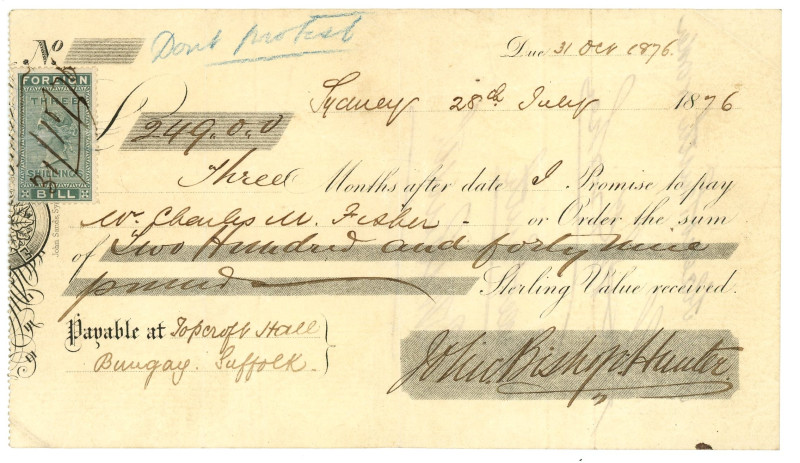 No Dont protest
Due 31 Oct 1876.
FOREIGN
THREE
SHILLINGS
BILL
Sydney 28th July 1876
£249.0.0
Three Months after date I Promise to pay
Mr. Charles M. Fisher - or Order the sum
of Two Hundred and forty nine
pounds Sterling Value received.
Payable at Topcroft Hall
Bungay. Suffolk.
John Bishop Hunter